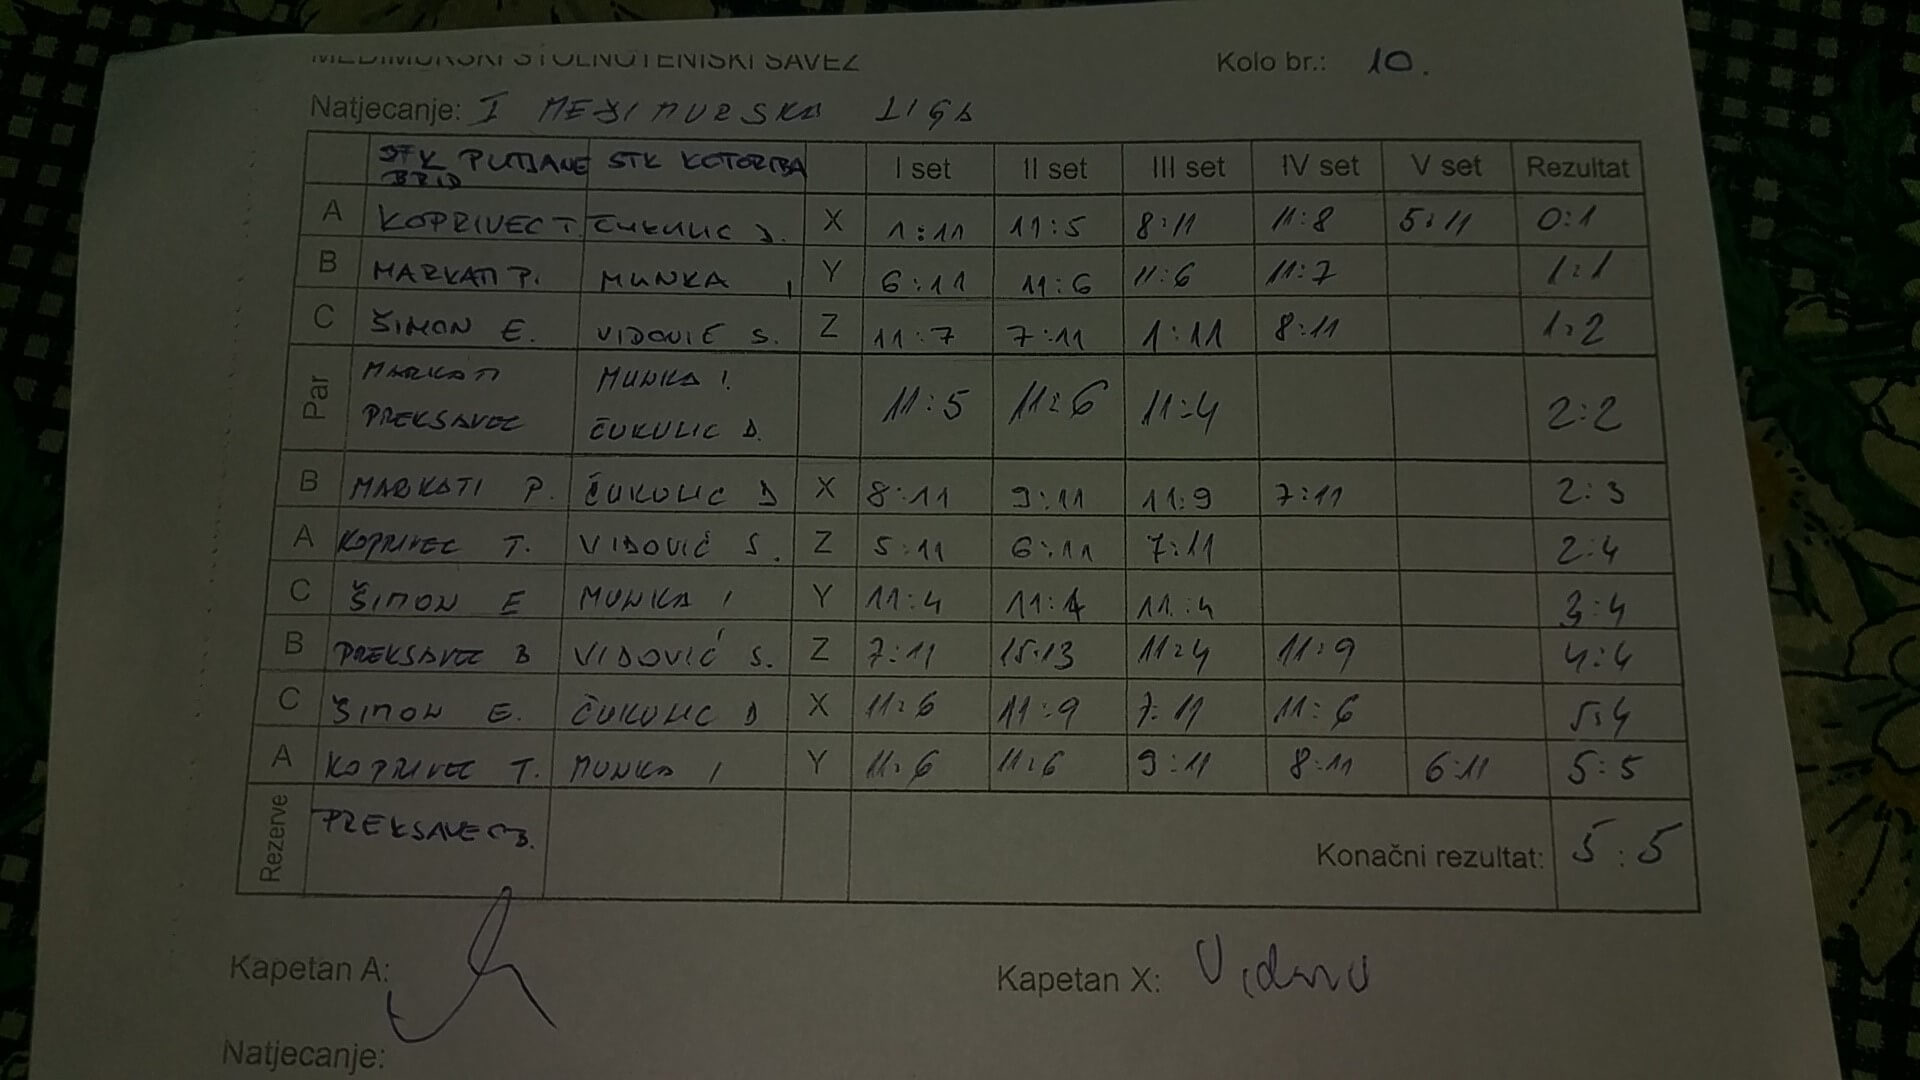 MEĐIMURSKI STOLNOTENISKI SAVEZ
Kolo br.: 10.
Natjecanje: I MEĐIMURSKA LIGA
STK PUTJANE BRID STK KOTORIBA I set II set III set IV set V set Rezultat
A KOPRIVEC T. ČUKULIC D. X 1:11 11:5 8:11 11:8 5:11 0:1
B MARKATI P. MUNKA I Y 6:11 11:6 11:6 11:7 1:1
C ŠIMON E. VIDOVIĆ S. Z 11:7 7:11 1:11 8:11 1:2
Par MARKATI PREKSAVEC MUNKA I. ČUKULIC D. 11:5 11:6 11:4 2:2
B MARKATI P. ČUKULIC D X 8:11 9:11 11:9 7:11 2:3
A KOPRIVEC T. VIDOVIĆ S. Z 5:11 6:11 7:11 2:4
C ŠIMON E MUNKA I Y 11:4 11:4 11:4 3:4
B PREKSAVEC B VIDOVIĆ S. Z 7:11 15:13 11:4 11:9 4:4
C ŠIMON E. ČUKULIC D X 11:6 11:9 7:11 11:6 5:4
A KOPRIVEC T. MUNKA I Y 11:6 11:6 9:11 8:11 6:11 5:5
Rezerve PREKSAVEC B. Konačni rezultat: 5:5
Kapetan A: Kapetan X:
Natjecanje: